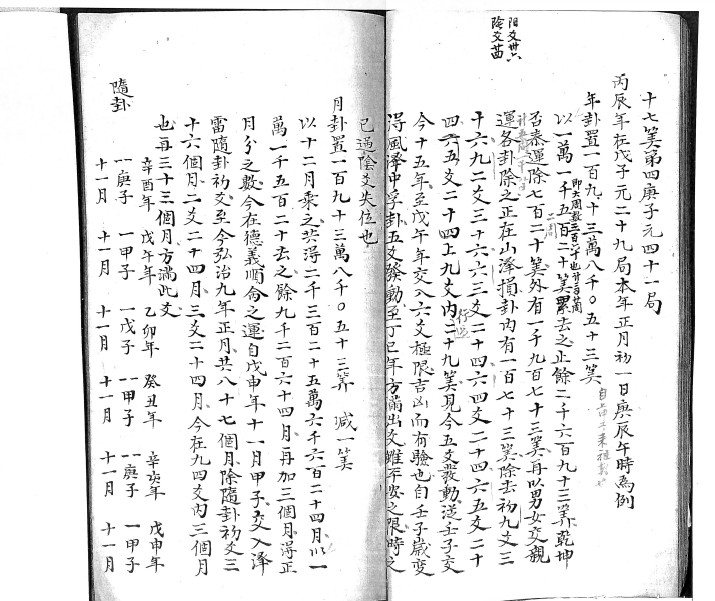 阳爻卅六
陰爻廿四
十七筭第四庚子元四十一局
丙辰年在戊子元二十九局本年正月初一日庚辰午時為例
年卦置一百九十三萬八千〇五十三筭
即大周數三百六十也廿二百周
以一萬一千五百二十筭累去之止餘二千六百九十三筭乾坤
二周
否泰運除七百二十筭外有一千九百七十三筭再以男女交親
運各卦除之正在山泽損卦內有一百七十三筭除去初九爻三
十六九二爻三十六六三爻二十四六四爻二十四六五爻二十
四六五爻二十四上九爻內二十九筭見今五爻發動逆壬子交
今十五年至戊午年交入六爻極限吉凶而有驗也自壬子歲变
得風泽中孚卦五爻發動至丁巳年方滿出爻雖平安之限時之
已過陰爻失位也
月卦置一百九十三萬八千〇五十三筭 減一筭
以十二月乘之共得二千三百二十五萬六千六百二十四月以一
萬一千五百二十去之餘九千二百六十四月再加三個月得正
月分之數今在德義順命之運自戊申年十一月甲子交入泽
雷隨卦初爻至今弘治九年正月共八十七個月除隨卦初爻三
十六個月二爻二十四月三爻二十四月今在九四爻內三個月
也再三十三個月方满此爻
隨卦
辛酉年 戊午年 乙卯年 癸丑年 辛亥年 戊申年
一庚子 一甲子 一戊子 一甲子 一庚子 一甲子
十一月 十一月 十一月 十一月 十一月 十一月